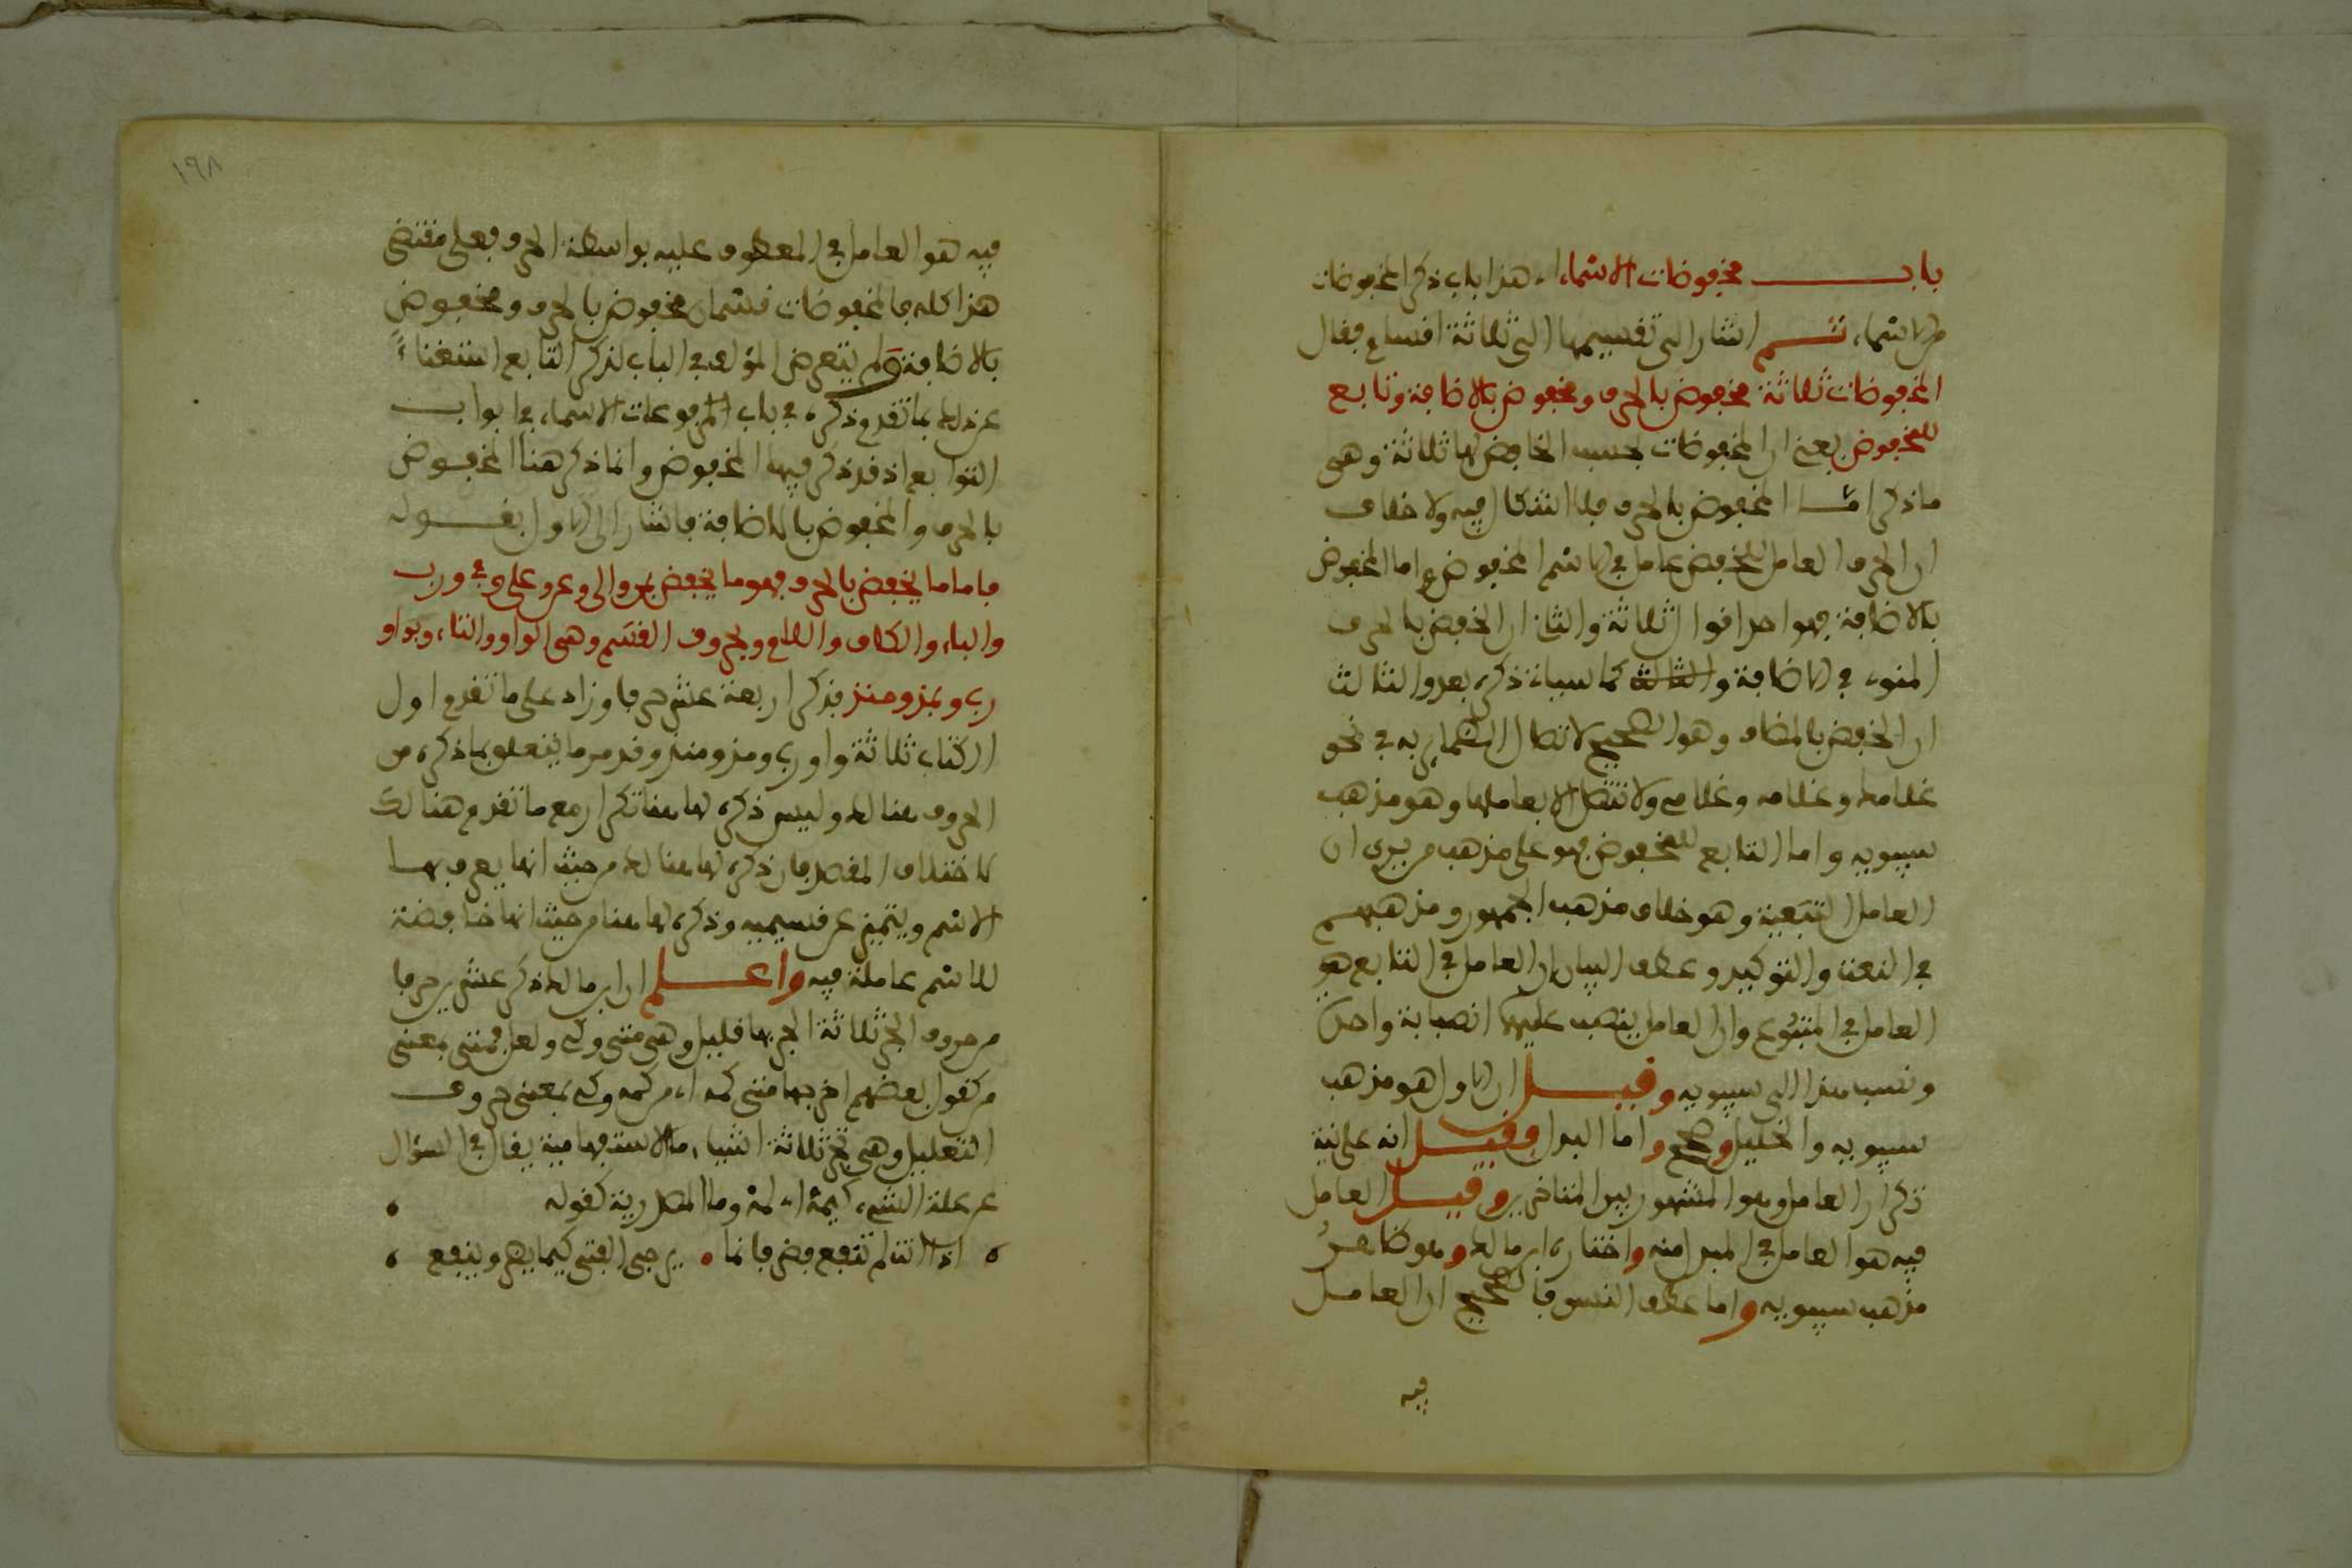 باب مخفوضات الاسماء، هذا باب ذكر المخفوضات
من الاسماء، ثم اشار الى تقسيمها الى ثلاثة اقسام فقال
المخفوضات ثلاثة مخفوض بالحرف ومخفوض بالاضافة وتابع
للمخفوض يعني ان المخفوضات بحسب الخافض لها ثلاثة وهي
ما ذكر اما المخفوض بالحرف فلا اشكال فيه ولا خلاف
ان الحرف العامل للخفض عامل في الاسم المخفوض واما المخفوض
بالاضافة فهو احد اقوال ثلاثة والثاني ان الخفض بالحرف
المنوي في الاضافة والثالث كما سياتي ذكره بعد والثالث
ان الخفض بالمضاف وهو الصحيح لاتصال الضماير به في نحو
غلامك وغلامه وغلامي ولا تتصل الا بعاملها وهو مذهب
سيبويه واما التابع للمخفوض فهو على مذهب من يرى ان
العامل التبعية وهو خلاف مذهب الجمهور ومذهبهم
في النعت والتوكيد وعطف البيان ان العامل في التابع هو
العامل في المتبوع وان العامل ينصب عليهما انصبابة واحدة
ونسب هذا الى سيبويه وقيل ان الاول هو مذهب
سيبويه والخليل وصحح واما البدل فقيل انه على نية
تكرار العامل وهو المشهور بين المتاخرين وقيل العامل
فيه هو العامل في المبدل منه واختاره ابن مالك وهو ظاهر
مذهب سيبويه واما عطف النسق فالصحيح ان العامل
فيه
١٩٨
فيه هو العامل في المعطوف عليه بواسطة الحرف فعلى مقتضى
هذا كله فالمخفوضات قسمان مخفوض بالحرف ومخفوض
بالاضافة ولم يتعرض المؤلف في الباب لذكر التابع استغناءً
عن ذلك بما تقدم ذكره في باب المرفوعات الاسماء، في ابواب
التوابع اذ قد ذكر فيها المخفوض وانما ذكر هنا المخفوض
بالحرف والمخفوض بالاضافة فاشار الى الاول بقوله
فاما ما يخفض بالحرف فهو ما يخفض بمن والى وعن وعلى وفي ورب
والباء والكاف واللام وبحروف القسم وهي الواو والتاء، وبواو
رب وبمذ ومنذ فذكر اربعة عشر حرفا وزاد على ما تقدم اول
الكتاب ثلاثة واو رب ومذ ومنذ وقد مر ما يتعلق بما ذكره من
الحروف هنالك وليس ذكره لها هنا تكرار مع ما تقدم هنالك
لاختلاف المقصد فان ذكره لها هنالك من حيث انها يعرف بها
الاسم ويتميز عن قسيميه وذكره لها هنا من حيث انها خافضة
للاسم عاملة فيه واعلم ان ابن مالك ذكر عشرين حرفا
من حروف الجر ثلاثة الجر بها قليل وهي متى وكي ولعل فمتى بمعنى
من كقول بعضهم اخرجها متى كمه اي من كمه وكي بمعنى حروف
التعليل وهي تجر ثلاثة اشياء، ما الاستفهامية يقال في السؤال
عن علة الشيء، كيمه اي لمه وما المصدرية كقوله
اذا انت لم تنفع فضر فانما يرجى الفتى كيما يضر وينفع